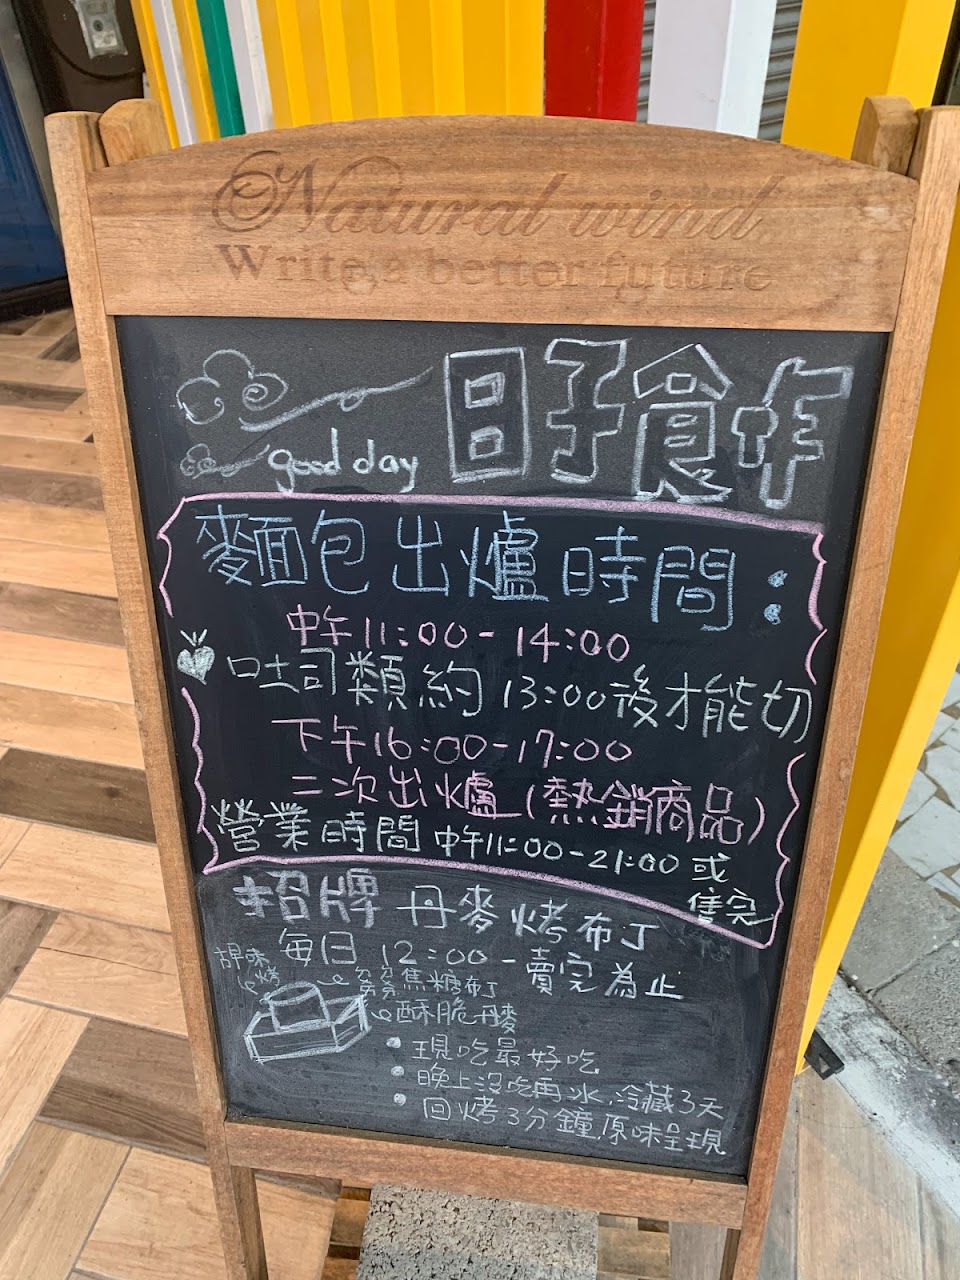 Natural wind
Write a better future
日子食作
good day
麵包出爐時間：
中午11:00-14:00
吐司類約13:00後才能切
下午16:00-17:00
二次出爐(熱銷商品)
營業時間 中午11:00-21:00或
售完
招牌 丹麥烤布丁
每日 12:00-賣完為止
焦糖布丁
酥脆丹麥
現吃最好吃
晚上沒吃再冰,冷藏3天
回烤3分鐘,原味呈現